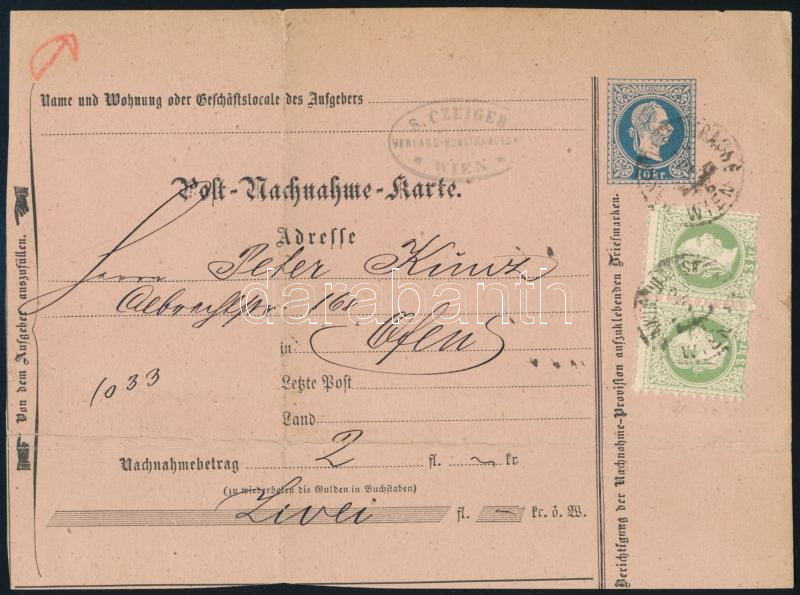 Name und Wohnung oder Geschäftslocale des Aufgebers
S. CZEIGER
VERLAGS-KUNSTHANDLUNG
WIEN
10 kr.
Post-Nachnahme-Karte.
Adresse
Herrn Peter Kunz
Albrechtstr 168
in Ofen
1033
Letzte Post
Land
Nachnahmebetrag 2 fl. kr.
(zu wiederholen die Gulden in Buchstaben)
Zwei fl. – kr. ö. W.
Von dem Aufgeber auszufüllen.
Berichtigung der Nachnahme-Provision aufzuklebenden Briefmarken.
3 kr
3 kr
WIEN
darabanth